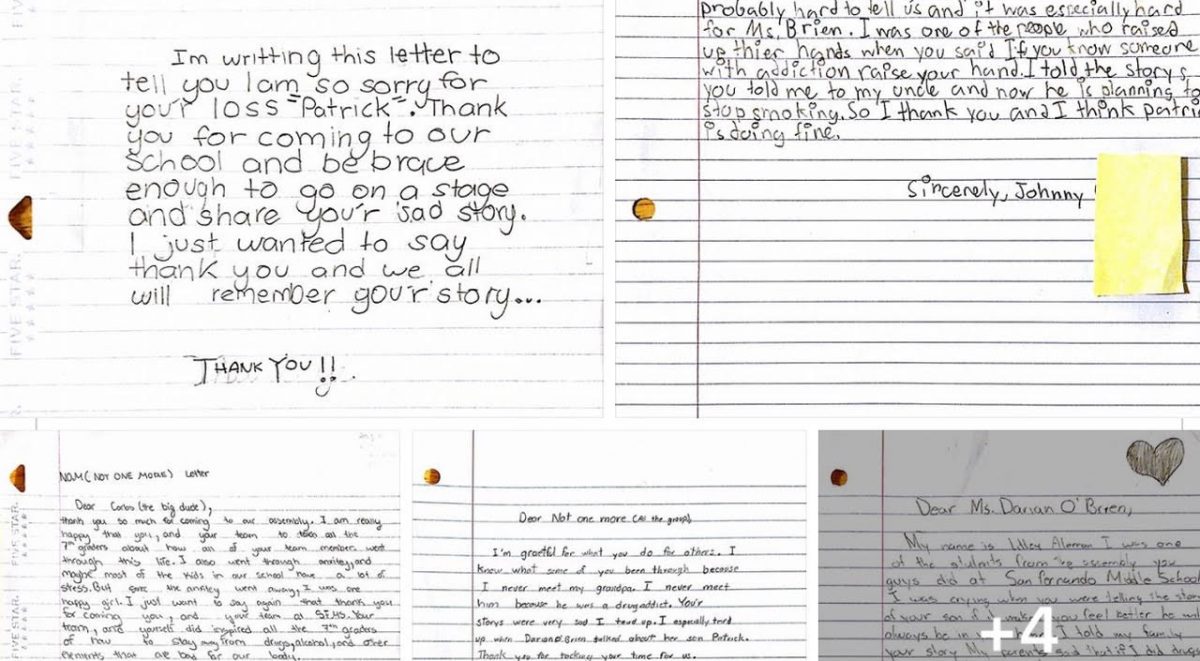 Im writting this letter to
tell you I am so sorry for
you'r loss "Patrick". Thank
you for coming to our
school and be brave
enough to go on a stage
and share you'r sad story.
I just wanted to say
thank you and we all
will remember you'r story...
THANK YOU !!
FIVE STAR.
probably hard to tell us and it was especially hard
for Ms. Brien. I was one of the people who raised
up thier hands when you said If you know someone
with addiction raise your hand. I told the story s
you told me to my uncle and now he is planning to
stop smoking. So I thank you and I think patri
is doing fine.
Sincerely, Johnny
NOM (NOT ONE MORE) Letter
Dear Carlos (the big dude),
thank you so much for coming to our assembly. I am really
happy that you, and your team to all the
7th graders about how all of your team members went
through this life. I also went through anxiety, and
maybe most of the kids in our school have a lot of
stress. But the anxiety went away, I was one
happy girl. I just want to say again that thank you
for coming you, and your team at SFMS. Your
team, and yourself did inspired all the 7th graders
of how to stay away from drugs, alcohol, and other
elements that are bad for our body.
FIVE STAR.
Dear Not one more (All the group),
I'm grateful for what you do for others. I
know what some of you been through because
I never meet my grandpa. I never meet
him because he was a drug addict. Your
storys were very sad I teard up. I especially terd
up when Darian O'Brien talked about her son Patrick.
Thank you for tacking your time for us.
Dear Ms. Darian O'Brien,
My name is I was one
of the students from the assembly you
guys did at San Fernando Middle School
I was crying when you were telling the story
of your son if it make you feel better he will
always be in I told my family
your story My parents said that if I did drugs
+4